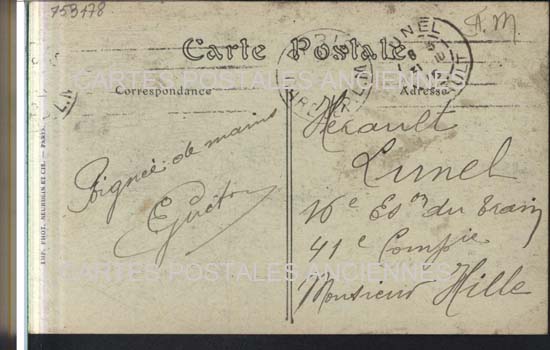 753478
F.M.
Carte Postale
Correspondance
Adresse
Poignée de mains
Hérault
Lunel
16e Eson du Train
41e Compie
Monsieur Hille
IMP. PHOT. NEURDEIN ET CIE. — PARIS
CARTES POSTALES ANCIENNES
CARTES POSTALES ANCIENNES